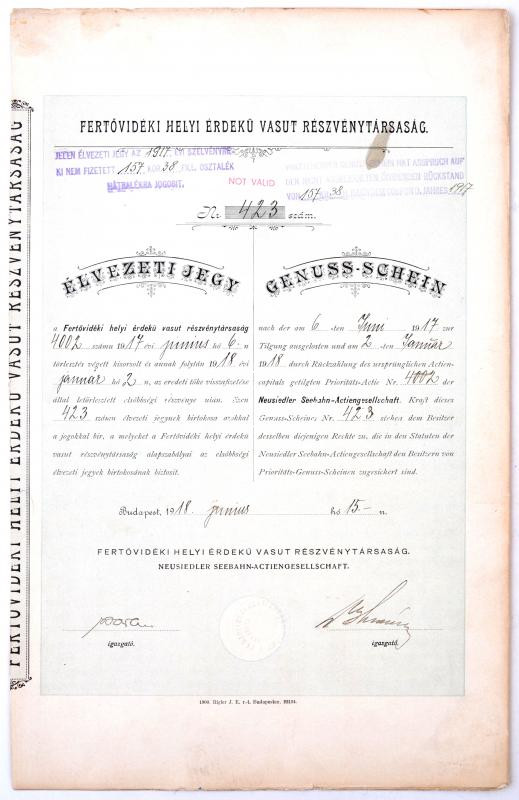 FERTŐVIDÉKI HELYI ÉRDEKŰ VASUT RÉSZVÉNYTÁRSASÁG
FERTŐVIDÉKI HELYI ÉRDEKŰ VASUT RÉSZVÉNYTÁRSASÁG.
JELEN ÉLVEZETI JEGY AZ 1917. ÉVI SZELVÉNYRE
KI NEM FIZETETT 157 KOR 38 FILL. OSZTALÉK
HÁTRALÉKRA JOGOSIT.
HAT ANSPRUCH AUF
DEN NICHT DIVIDENDEN RÜCKSTAND
VON 157 38 JAHRES 1917
NOT VALID
Nr. 423 szám.
ÉLVEZETI JEGY
a Fertővidéki helyi érdekű vasut részvénytársaság
4002 számu 1917 évi junius hó 6.-n
törlesztés végett kisorsolt és annak folytán 1918 évi
január hó 2-n, az eredeti tőke visszafizetése
által letörlesztett elsőbbségi részvénye után. Ezen
423 számu élvezeti jegynek birtokosa azokkal
a jogokkal bir, a melyeket a Fertővidéki helyi érdekű
vasut részvénytársaság alapszabályai az elsőbbségi
élvezeti jegyek birtokosának biztosit.
GENUSS-SCHEIN
nach der am 6 -ten Juni 1917 zur
Tilgung ausgelosten und am 2 -ten Januar
1918 durch Rückzahlung des ursprünglichen Actien-
capitals getilgten Prioritäts-Actie 4002 der
Neusiedler Seebahn-Actiengesellschaft. Kraft dieses
Genuss-Scheines Nr. 423 stehen dem Besitzer
desselben diejenigen Rechte zu, die in den Statuten der
Neusiedler Seebahn-Actiengesellschaft den Besitzern von
Prioritäts-Genuss-Scheinen zugesichert sind.
Budapest, 1918. junius hó 15.- n.
FERTŐVIDÉKI HELYI ÉRDEKŰ VASUT RÉSZVÉNYTÁRSASÁG.
NEUSIEDLER SEEBAHN-ACTIENGESELLSCHAFT.
igazgató.
igazgató.
1900. Rigler J. E. r.-t. Budapesten.